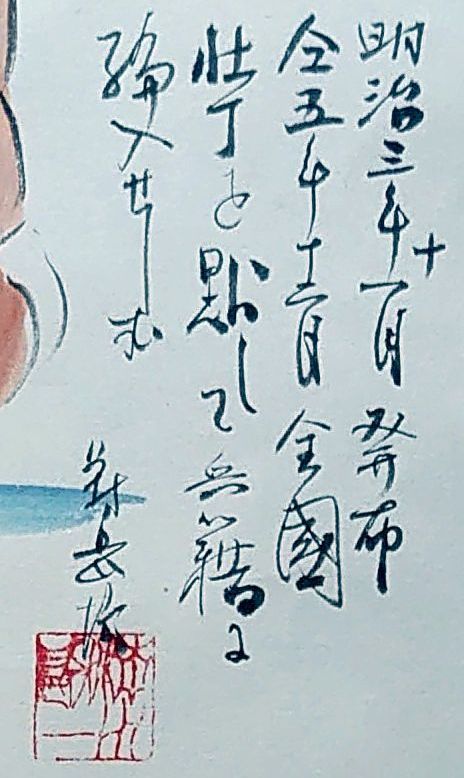 明治三年十一月發布
仝五年十二月全國
壮丁を點して兵籍に
編入せしむ